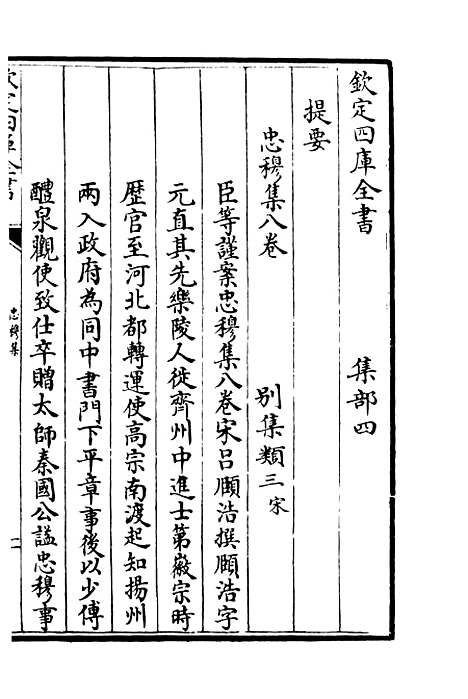 欽定四庫全書　　　集部四
提要
忠穆集八卷　　　别集類三宋
臣等謹案忠穆集八卷宋吕頤浩撰頤浩字
元直其先樂陵人徙齊州中進士第徽宗時
歴官至河北都轉運使高宗南渡起知揚州
兩入政府為同中書門下平章事後以少傅
醴泉觀使致仕卒贈太師秦國公謚忠穆事
欽定四庫全書
忠穆集